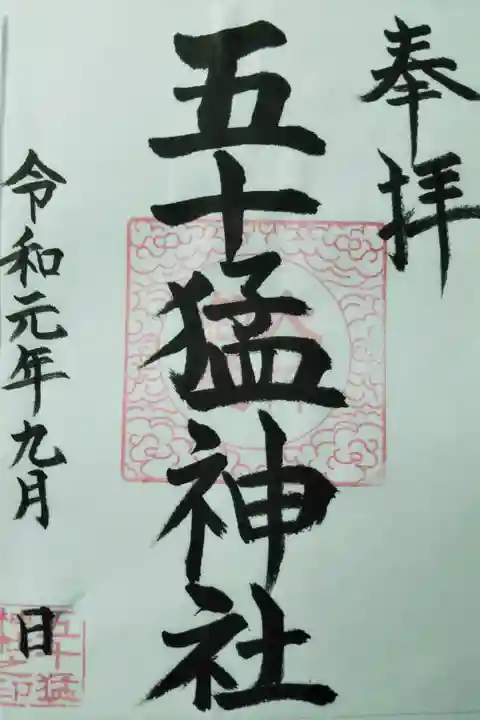 奉拝
五十猛神社
令和元年九月 日
五十猛